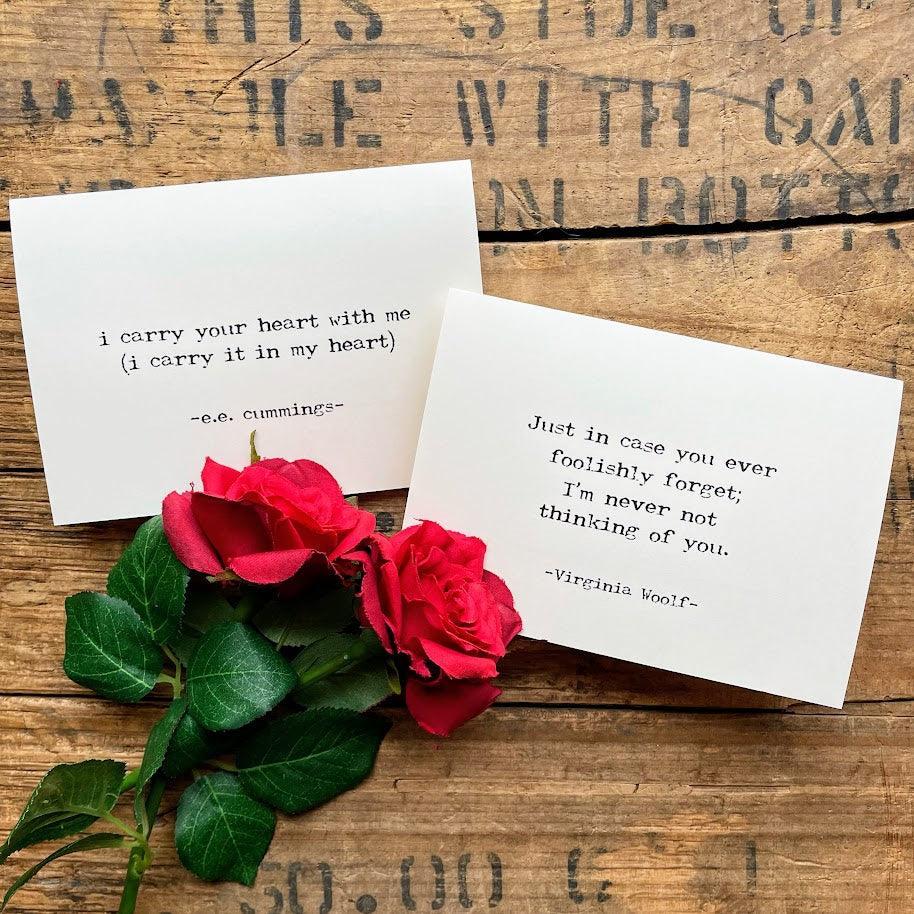 THIS SIDE OF
WITH CAR
ON BOTTO
i carry your heart with me
(i carry it in my heart)
-e.e. cummings-
Just in case you ever
foolishly forget;
I'm never not
thinking of you.
-Virginia Woolf-
50.00 G